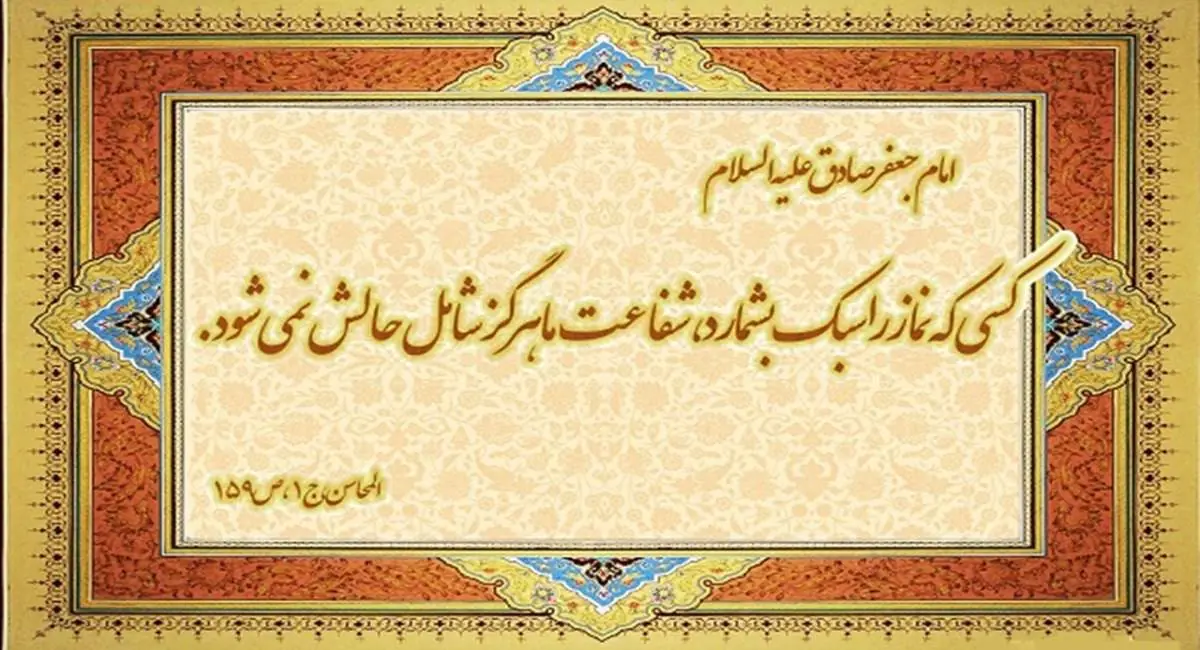 امام جعفر صادق علیه السلام
کسی که نماز را سبک بشمارد، شفاعت ما هرگز شامل حالش نمی شود.
المحاسن، ج ۱، ص ۱۵۹